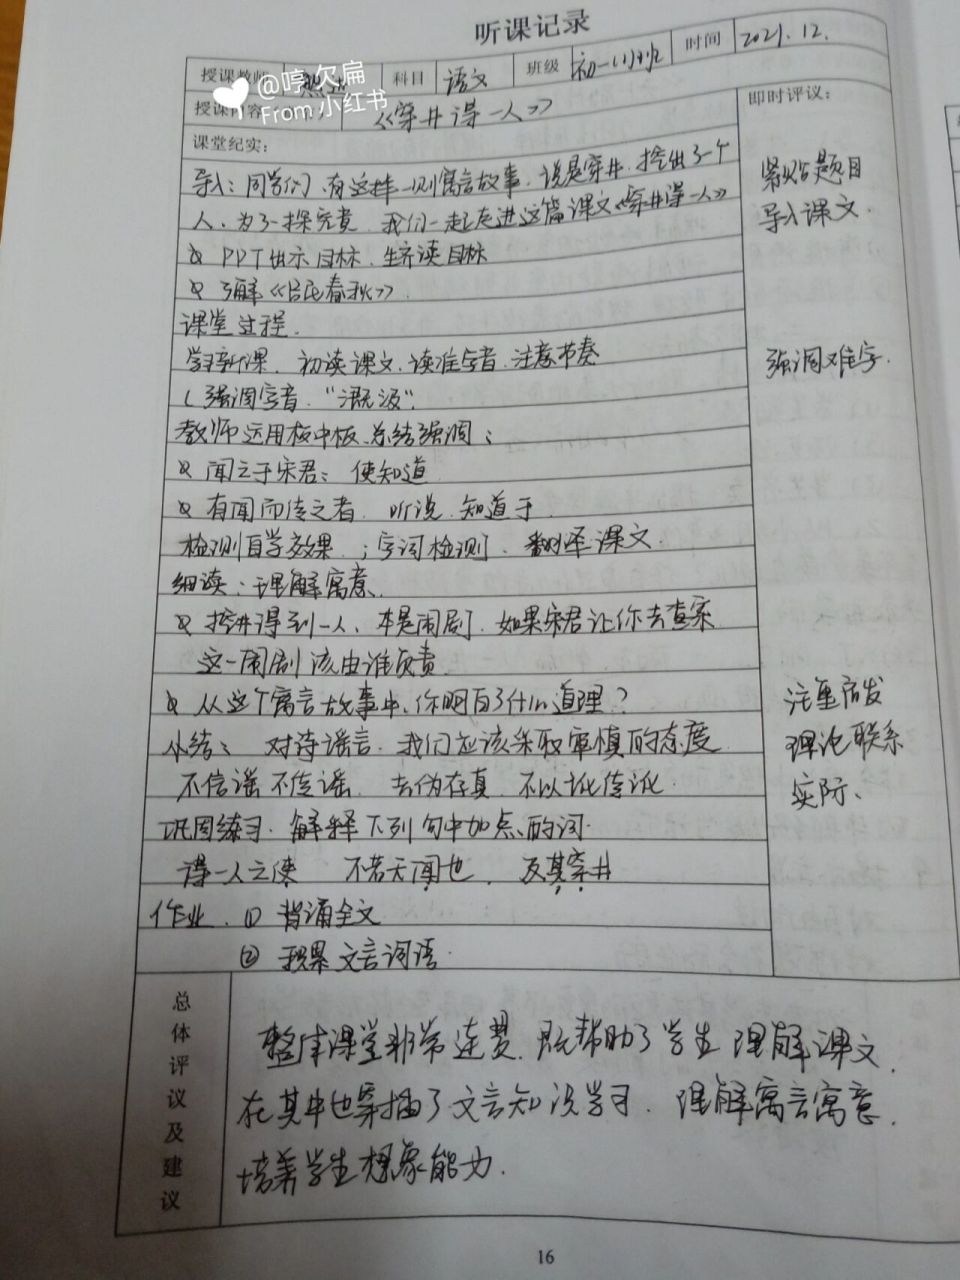 听课记录
授课教师 科目 语文 班级 初一(1)班 时间 2021.12.
@哼欠扁
From 小红书
授课内容 《穿井得一人》 即时评议：
课堂纪实：
导入：同学们、有这样一则寓言故事、说是穿井、挖出了一个
人、为了一探究竟、我们一起走进这篇课文《穿井得一人》
紧贴题目
导入课文.
PPT出示目标、生齐读目标
了解《吕氏春秋》.
课堂过程.
学习新课. 初读课文、读准字音、注意节奏
强调难字.
强调字音. "溉汲".
教师运用板中板、总结强调：
闻之于宋君： 使知道
有闻而传之者. 听说、知道于.
检测自学效果.；字词检测、翻译课文
细读：理解寓意.
挖井得到一人、本是闹剧、如果宋君让你去查案
这一闹剧该由谁负责.
从这个寓言故事中、你明白了什么道理？
注重启发
理论联系
实际、
小结： 对待谣言、我们应该采取审慎的态度
不信谣 不传谣 去伪存真、不以讹传讹.
巩固练习. 解释下列句中加点的词.
得一人之使 不若无闻也、 及其穿井
作业. ① 背诵全文
② 积累文言词语.
总体评议及建议
整体课堂非常连贯、既帮助了学生理解课文、
在其中也穿插了文言知识学习、理解寓言寓意、
培养学生想象能力.
16